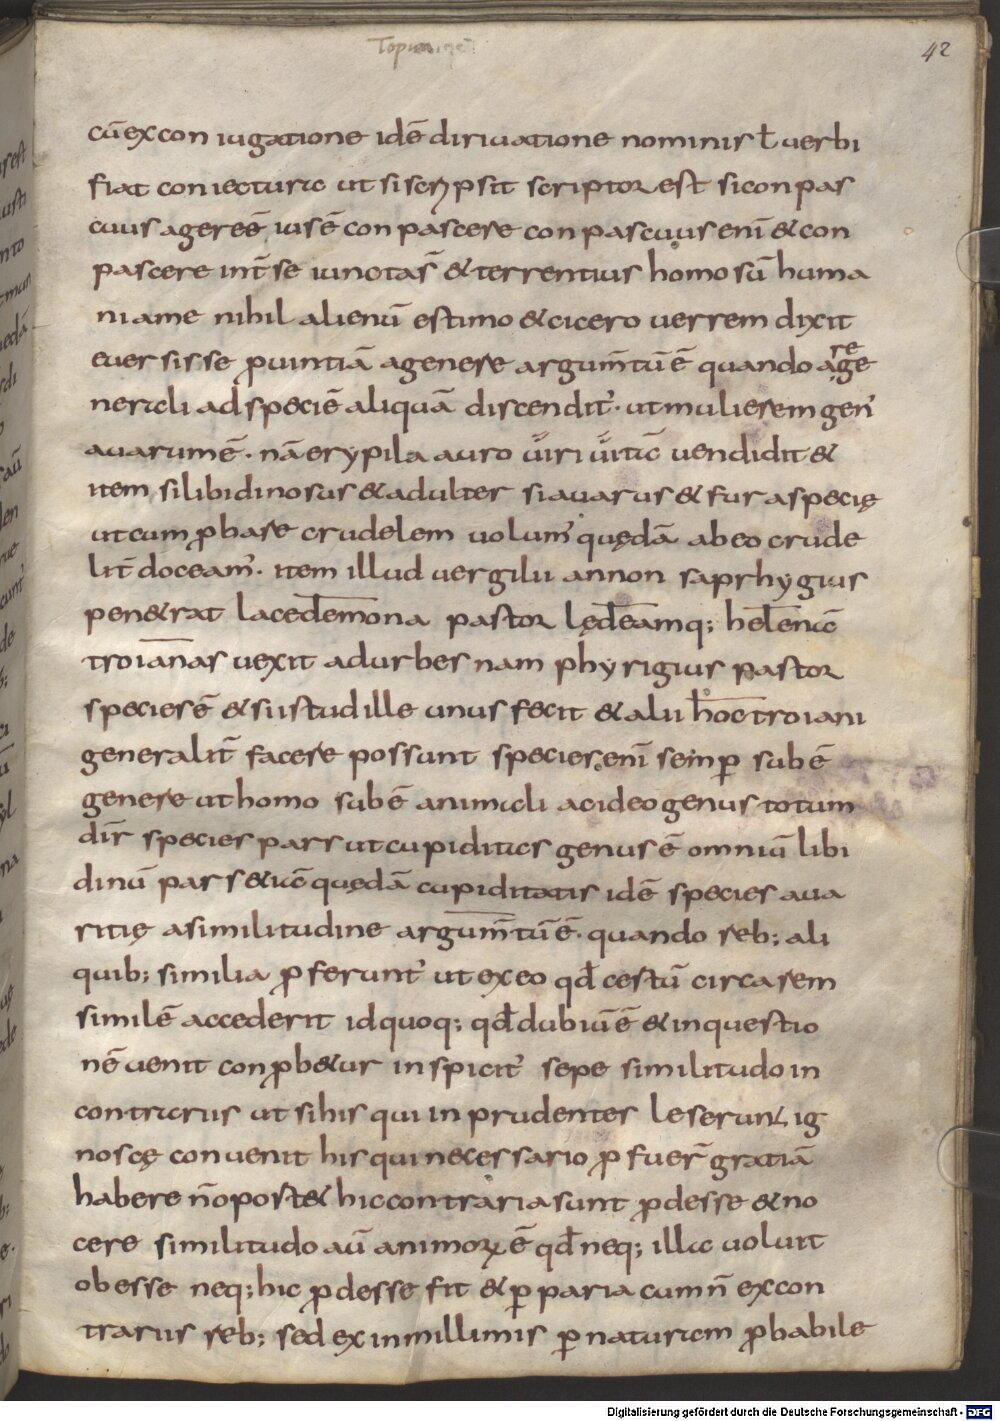 Topica
42
cū ex con iugatione idē diriuatione nominis ł uerbi
fiat coniectura ut si scrypsit scriptor est si conpas
cuus ager eē, ius ē conpascere conpascuus enī & con
pascere int̄ se iunctas̄ & terrentius homo sū huma
ni ame nihil alienū estimo & cicero uerrem dixit
euersisse ꝓuintiā a genere argum̄tū ē quando a re ge
nerali ad speciē aliquā discendit᷒· ut mulierem gen᷒
auarum ē· nā erypila auro uiri uitā uendidit &
item, si libidinosus & adulter si auarus & fur a specię
ut cum ꝓbare crudelem uolum᷒ quędā ab eo crude
lit̄ doceam᷒· item illud uergilii an non sap rhygius
pen&rat lacedemona pastor lędeamq; helenā
troianas uexit ad urbes nam phyrigius pastor
species ē & si istud ille unus fecit & alii hoc troiani
generalit̄ facere possunt species enī semꝑ sub ē
genere ut homo sub ē animali acideo genus totum
dīr species pars ut cupiditas genus ē omniū libi
dinū pars & iā quędā cupiditatis idē species aua
ritię a similitudine argum̄tū ē· quando reb; ali
quib; similia ꝓferunt᷒ ut ex eo qđ cestū circa rem
similē accederit id quoq; qđ dubiū ē & in questio
nē uenit conꝓb&ur inspicit᷒ sepe similitudo in
contrarus ut si his qui inprudenter leserunt, ig
noscę conuenit his qui necessario ꝓfuer̄ gratiā
habere n̄ oport& hic contraria sunt ꝓdesse & no
cere similitudo aū animoꝝ ē qđ neq; illic uoluit
obesse neq; hic ꝓdesse fit & ꝑ paria cum n̄ ex con
trarus reb; sed ex inmillimis ꝑ naturam ꝓbabile
Digitalisierung gefördert durch die Deutsche Forschungsgemeinschaft - DFG